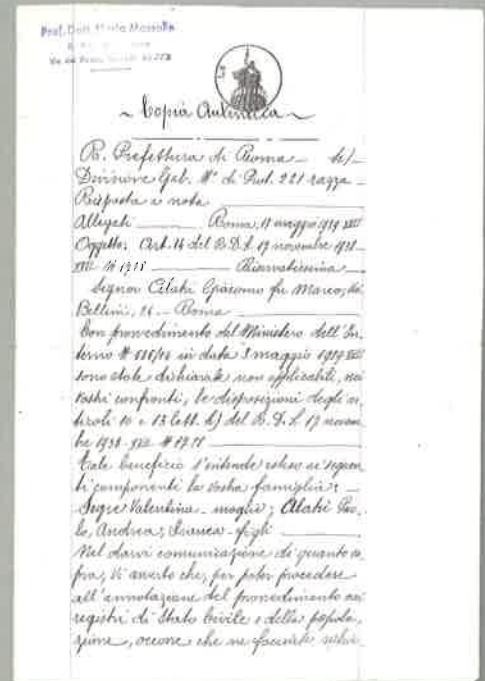 Prof. Dott.
~ Copia Autentica ~
R. Prefettura di Roma
Divisione Gab. N° di Prot. 221 razza
Risposta a nota
Allegati Roma, 11 maggio 1939 XVII
Oggetto: Art. 14 del R.D.L. 17 novembre 1938
XVII N° 1728 Riservatissima
Signor Alatri Giacomo fu Marco, Via
Bellini, 26 - Roma
Con provvedimento del Ministero dell'In
terno N° in data 3 maggio 1939 XVII
sono state dichiarate non applicabili, nei
vostri confronti, le disposizioni degli ar
ticoli 10 e 13 lett. h) del R. D. L. 17 novem
bre 1938 XVII N° 1728
Tale beneficio s'intende esteso ai seguen
ti componenti la vostra famiglia:
Segre Valentina - moglie; Alatri Pao
lo, Andrea, Franca - figli
Nel darvi comunicazione di quanto so
pra, Vi avverto che, per poter procedere
all'annotazione del provvedimento nei
registri di Stato Civile e della popola
zione, occorre che ne facciate